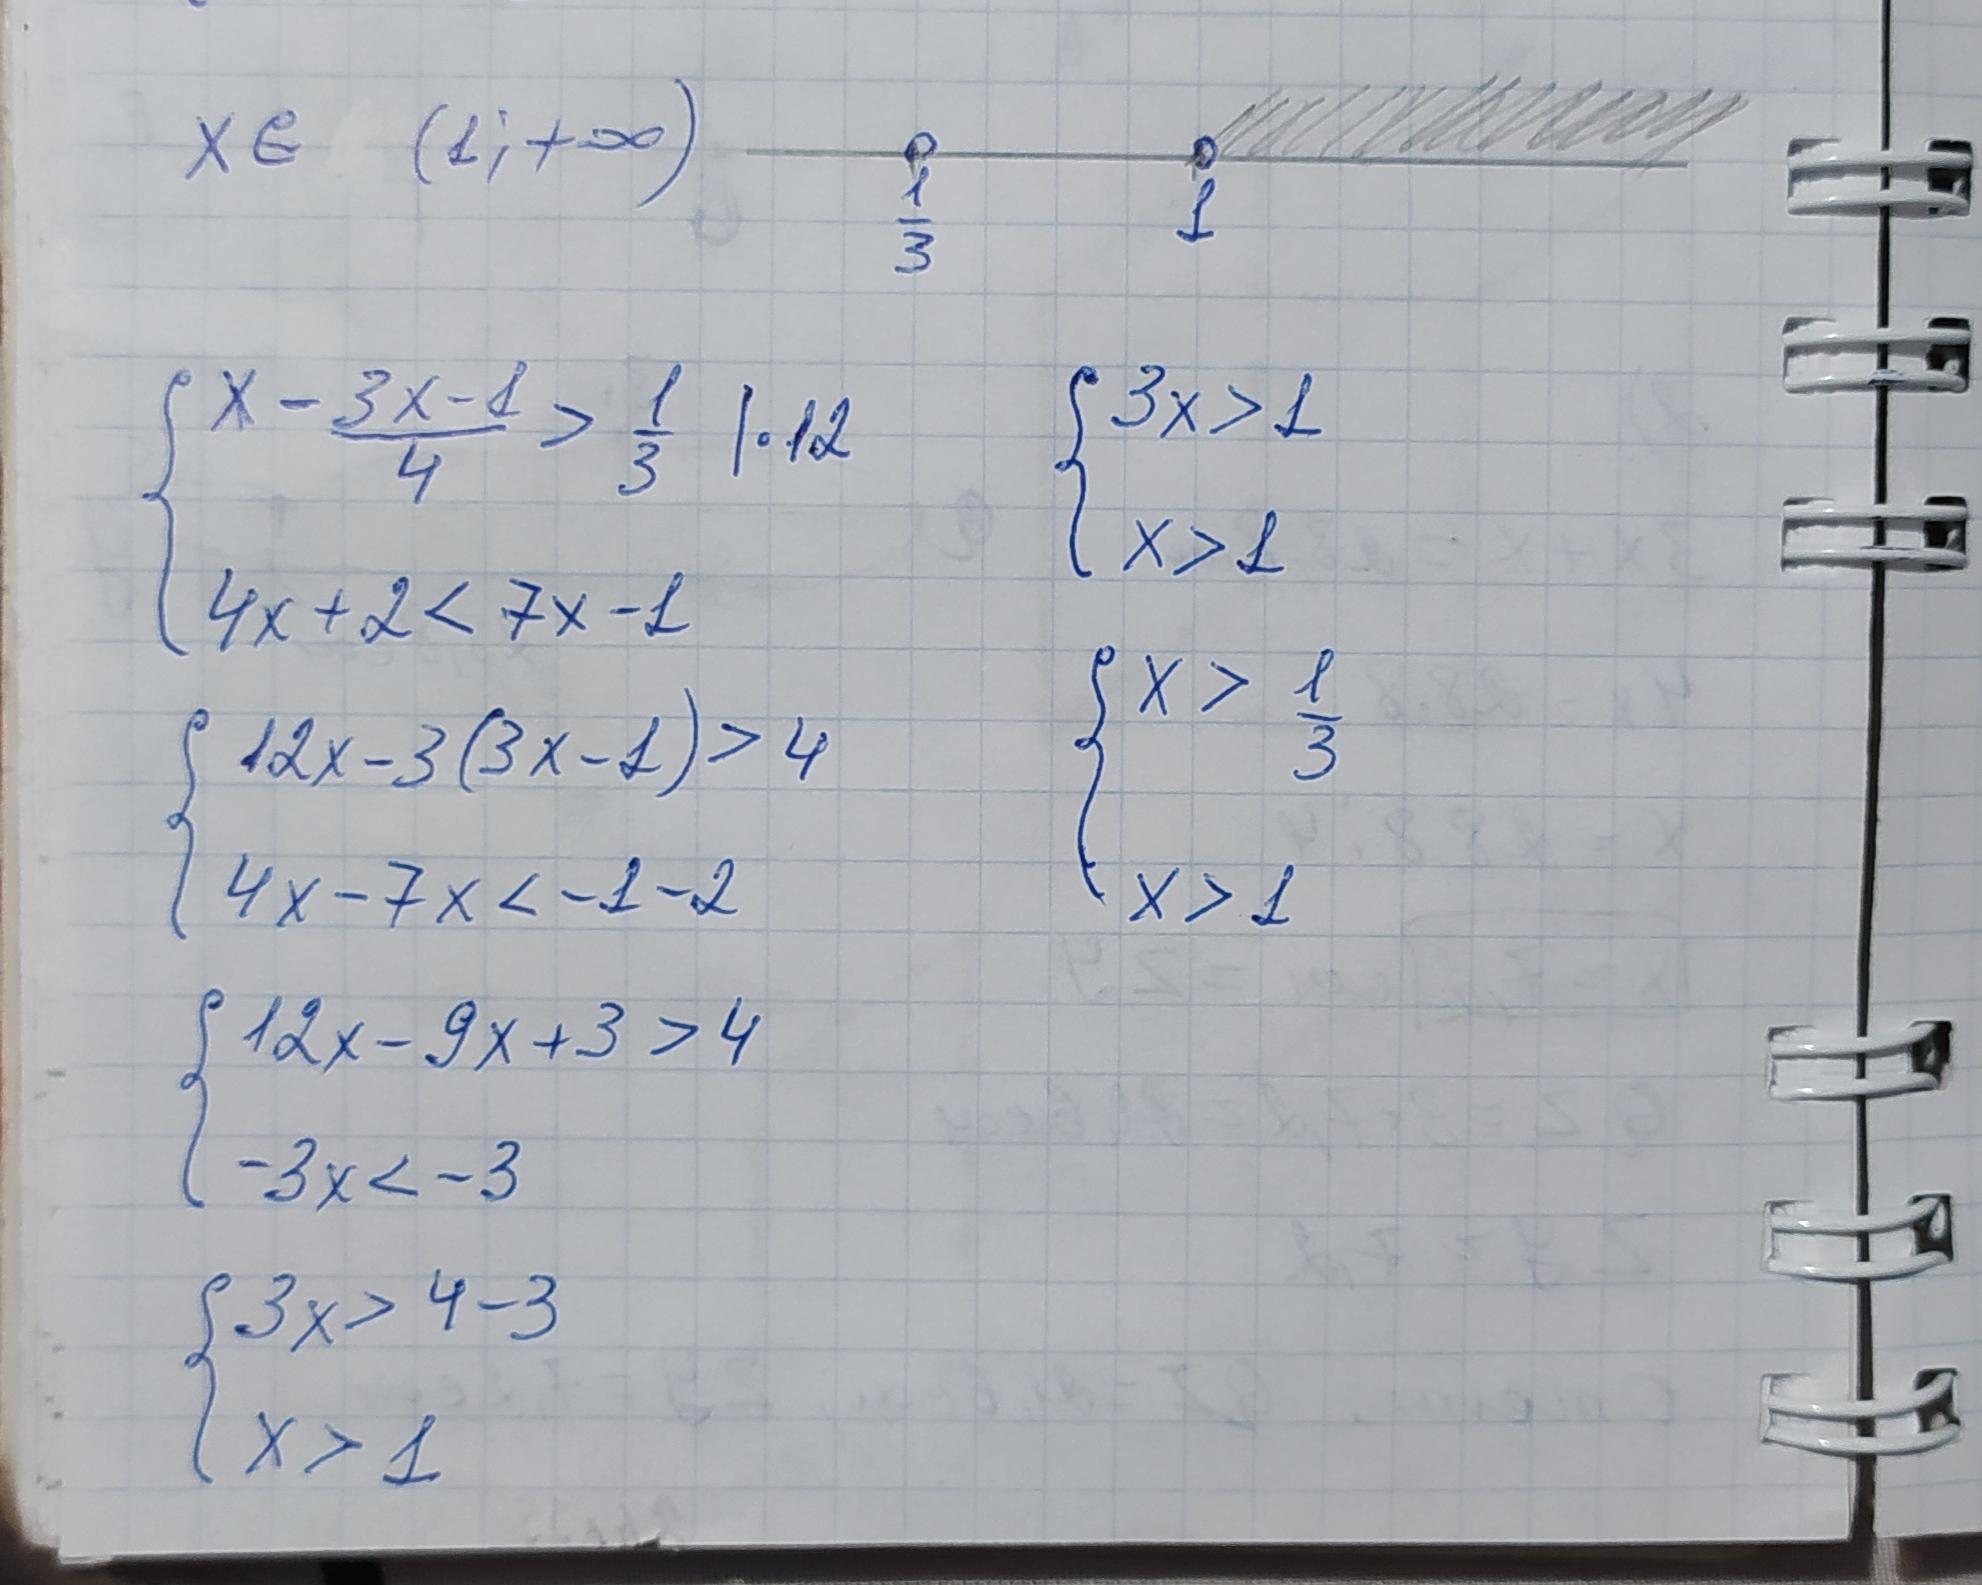 x∈ (1;+∞)
1/3 1
{ x - (3x-1)/4 > 1/3 |·12
4x+2<7x-1
{ 12x-3(3x-1)>4
4x-7x<-1-2
{ 12x-9x+3>4
-3x<-3
{ 3x>4-3
x>1
{ 3x>1
x>1
{ x> 1/3
x>1